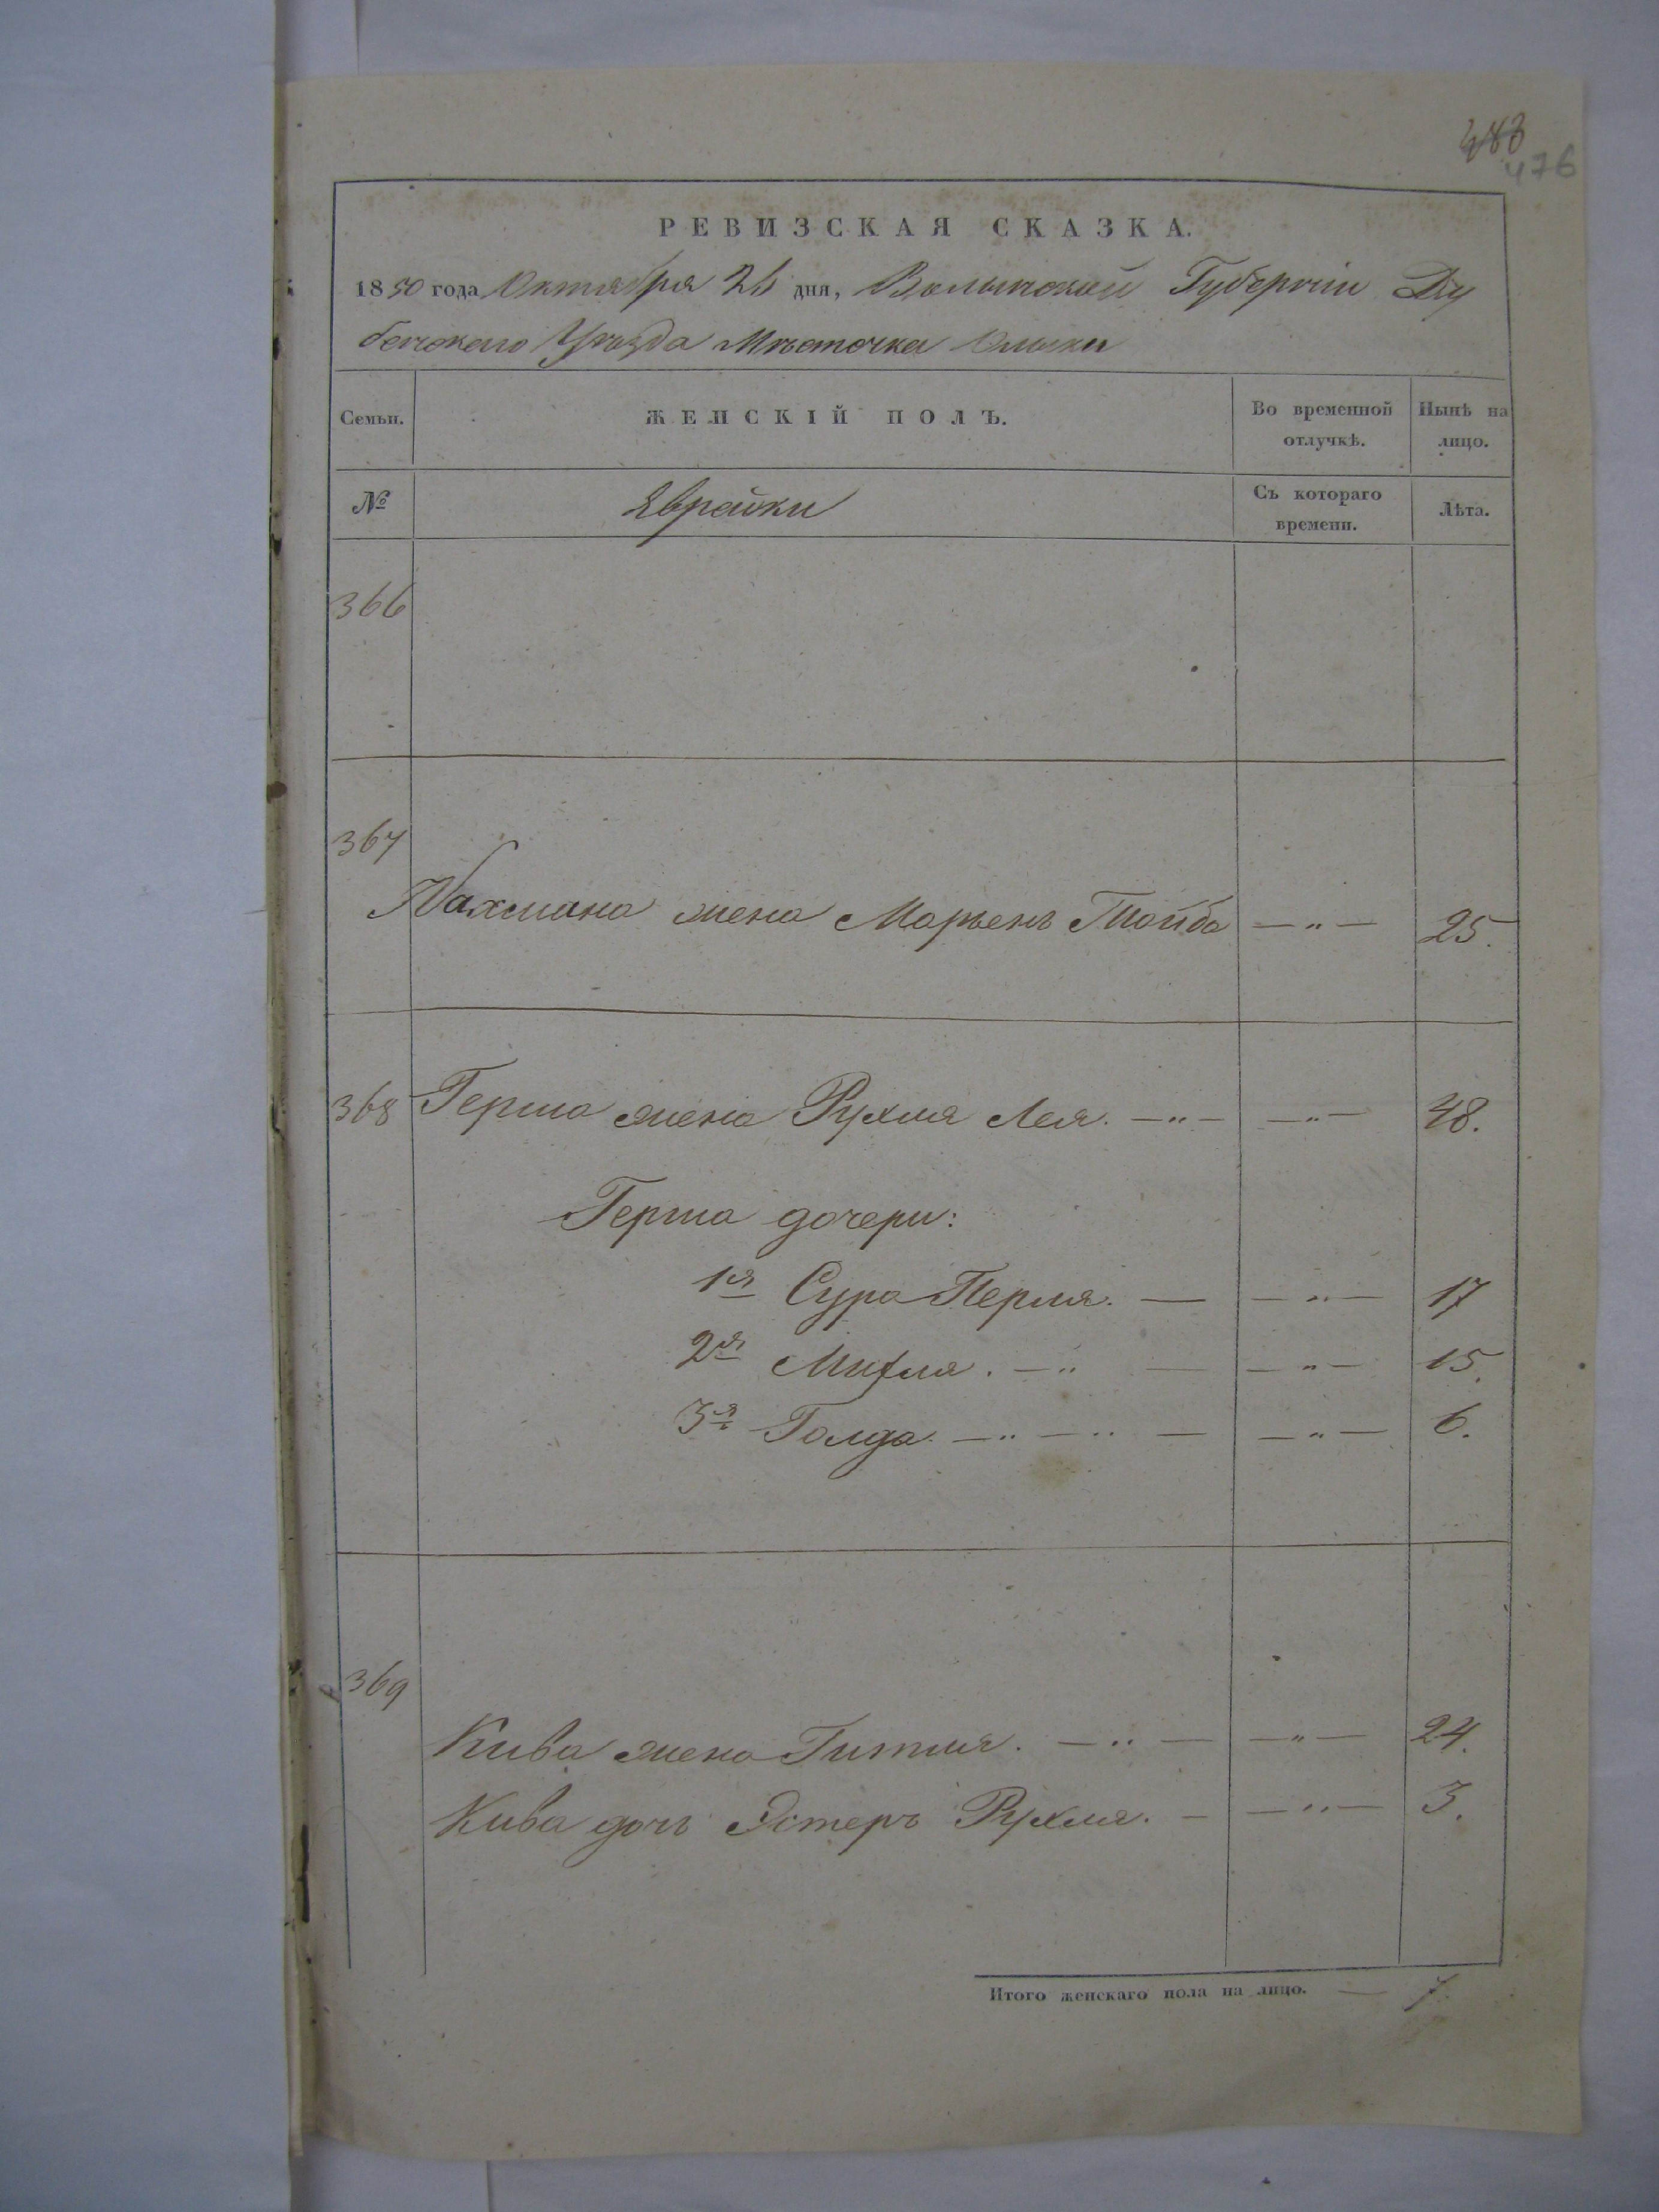 483
476
РЕВИЗСКАЯ СКАЗКА.
1850 года Октября 26 дня, Волынской Губерніи Ду
бенскаго Уѣзда Мѣстечка Олыки
Семьи. ЖЕНСКІЙ ПОЛЪ. Во временной отлучкѣ. Нынѣ на лицо.
№ Еврейки Съ котораго времени. Лѣта.
366
367
Нахмана жена Марьемъ Тойба — „ — 25.
368 Герша жена Рухля Лея. — „ — — „ — 48.
Герша дочери:
1я Сура Перля. — — „ — 17
2я Митля. — „ — — „ — 15.
3я Голда. — „ — „ — — „ — 6.
369
Кива жена Гитля. — „ — — „ — 24.
Кива дочь Эстеръ Рухля. — — „ — 3.
Итого женскаго пола на лицо. — 7.